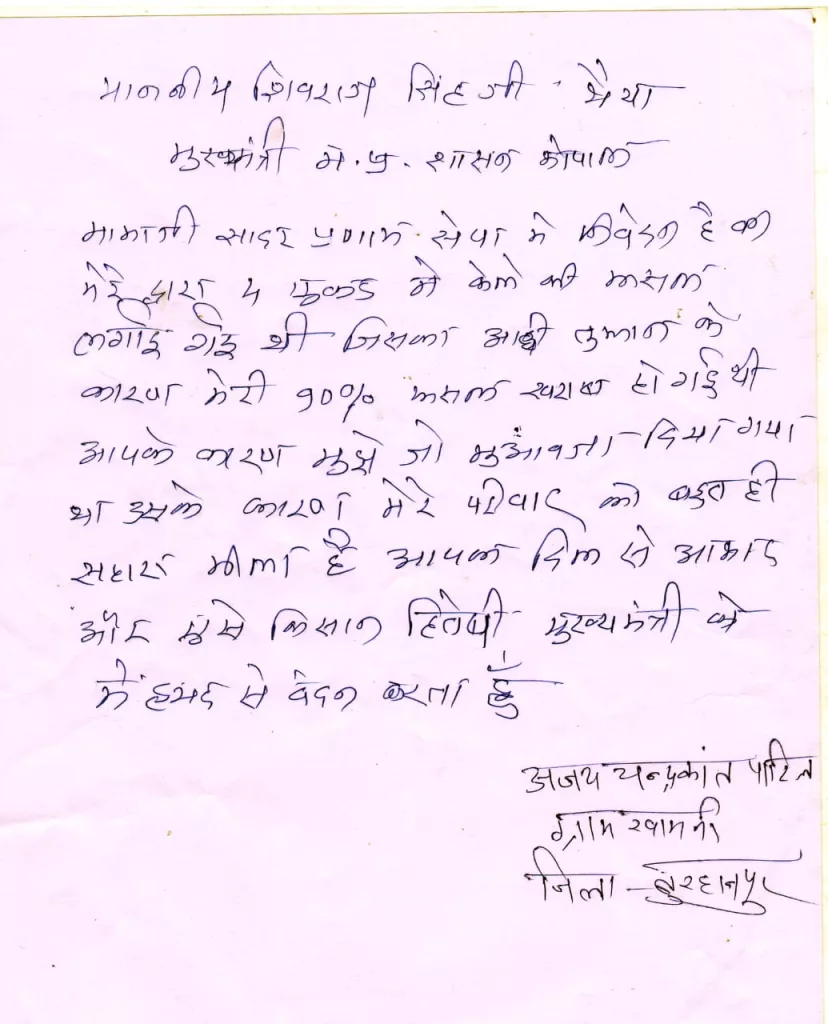 माननीय शिवराज सिंह जी भैया
मुख्यमंत्री म.प्र. शासन भोपाल
मामाजी सादर प्रणाम सेवा मे निवेदन है की
मेरे द्वारा 4 एकड मे केले की फसल
लगाई गई थी जिसका आंधी तुफान के
कारण मेरी 90% फसल खराब हो गई थी
आपके कारण मुझे जो मुआवजा दिया गया
था उसके कारण मेरे परिवार को बहुत ही
सहारा मीला है आपका दिल से आभार
और किसान हितेषी मुख्यमंत्री को
मे से वंदन करता हुँ
अजय चन्द्रकांत पाटिल
ग्राम खामनी
जिला - बुरहानपुर